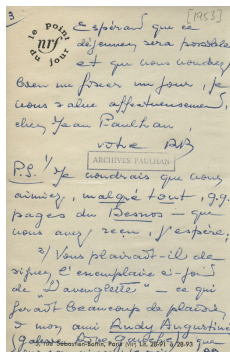 3
[1953]
le point
nrf
du jour
Espérant que ce
déjeuner sera possible
et que vous voudrez
bien me fixer un jour, je
vous salue affectueusement,
cher Jean Paulhan,
votre
ARCHIVES PAULHAN
P.S. 1/ Je voudrais que vous
aimiez, malgré tout, q.q.
pages du Desnos — que
vous avez reçu, j'espère;
2/ Vous plairait-il de
signer l'exemplaire ci-joint
de "L'aveuglette" — ce qui
ferait beaucoup de plaisir
à mon ami Lindy Augustine
5, rue Sébastien-Bottin, Paris (VIIe), Lit. 28-91 à 28-93